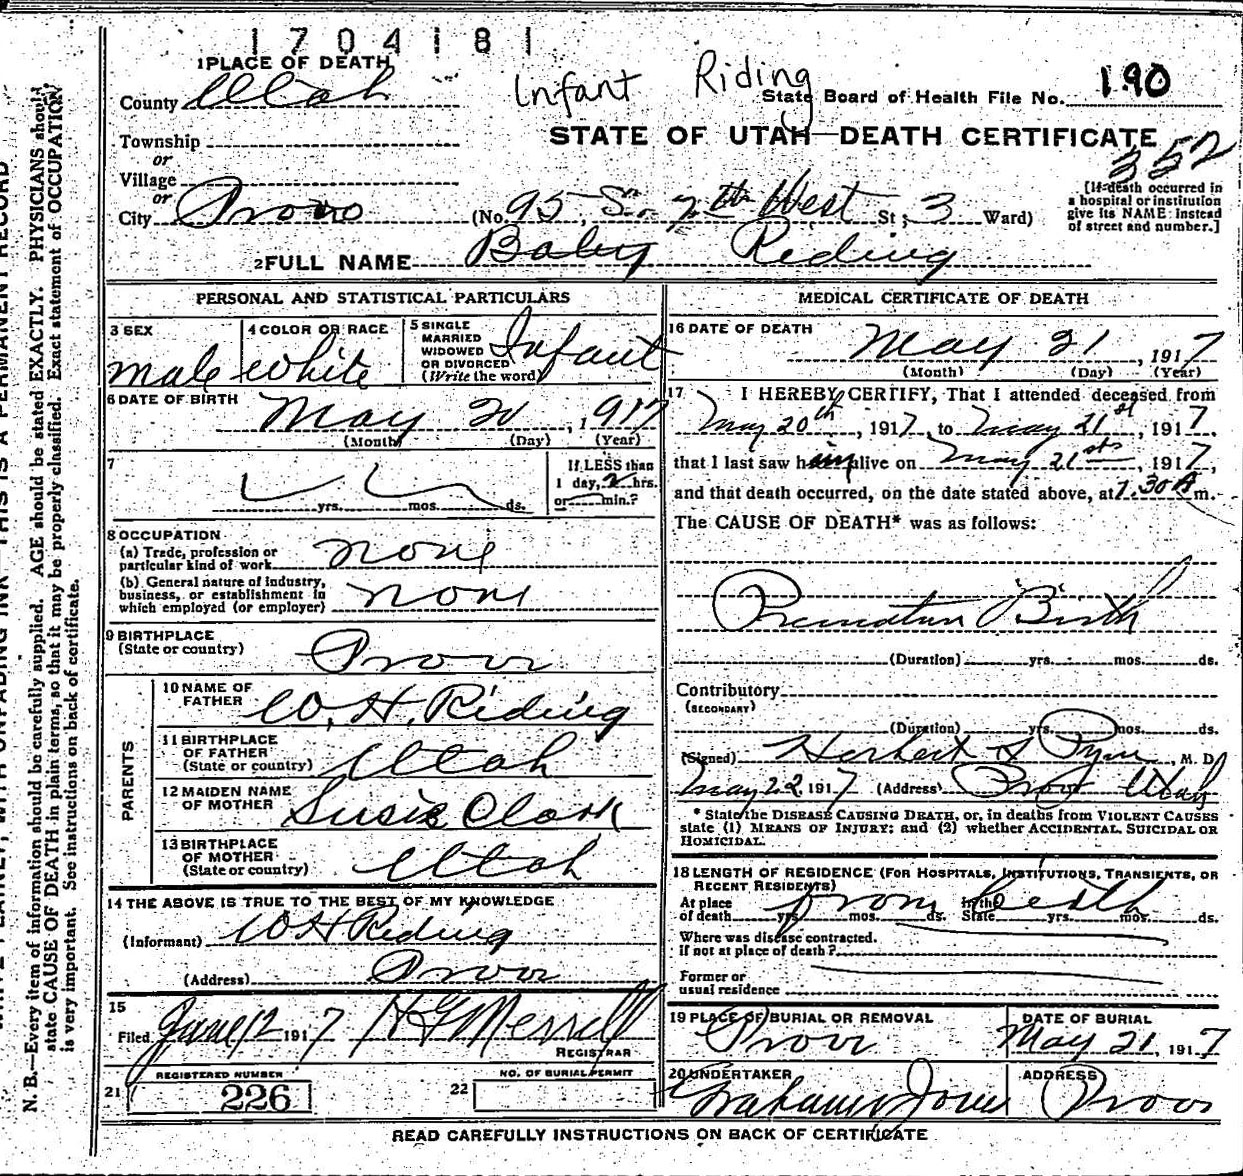 1704181
1 PLACE OF DEATH
Infant Riding
County Utah
State Board of Health File No. 190
STATE OF UTAH—DEATH CERTIFICATE
352
Township
or
Village
or
City Provo (No. 95, So. 7th West St; 3 Ward)
[If death occurred in
a hospital or institution
give its NAME instead
of street and number.]
2 FULL NAME Baby Riding
PERSONAL AND STATISTICAL PARTICULARS
3 SEX
male
4 COLOR OR RACE
white
5 SINGLE
MARRIED
WIDOWED
OR DIVORCED
(Write the word)
Infant
6 DATE OF BIRTH
May 20, 1917
(Month) (Day) (Year)
7
yrs. mos. ds.
If LESS than
1 day, 2 hrs.
or min.?
8 OCCUPATION
(a) Trade, profession or
particular kind of work
none
(b) General nature of industry,
business, or establishment in
which employed (or employer)
none
9 BIRTHPLACE
(State or country)
Provo
PARENTS
10 NAME OF
FATHER
W. H. Riding
11 BIRTHPLACE
OF FATHER
(State or country)
Utah
12 MAIDEN NAME
OF MOTHER
Susie Clark
13 BIRTHPLACE
OF MOTHER
(State or country)
Utah
14 THE ABOVE IS TRUE TO THE BEST OF MY KNOWLEDGE
(Informant) W H Riding
(Address) Provo
15
Filed June 12 1917 H G Merrell
REGISTRAR
REGISTERED NUMBER
21 226
NO. OF BURIAL PERMIT
22
MEDICAL CERTIFICATE OF DEATH
16 DATE OF DEATH
May 21, 1917
(Month) (Day) (Year)
17 I HEREBY CERTIFY, That I attended deceased from
May 20th, 1917, to May 21st, 1917,
that I last saw him alive on May 21st, 1917,
and that death occurred, on the date stated above, at 7.30 A m.
The CAUSE OF DEATH* was as follows:
Premature Birth
(Duration) yrs. mos. ds.
Contributory
(SECONDARY)
(Duration) yrs. mos. ds.
(Signed) Herbert S Pyne, M. D.
May 22 1917 (Address) Provo Utah
* State the DISEASE CAUSING DEATH, or, in deaths from VIOLENT CAUSES
state (1) MEANS OF INJURY; and (2) whether ACCIDENTAL, SUICIDAL OR
HOMICIDAL.
18 LENGTH OF RESIDENCE (FOR HOSPITALS, INSTITUTIONS, TRANSIENTS, OR
RECENT RESIDENTS)
At place
of death yrs. mos. ds. In the
State yrs. mos. ds.
from
Where was disease contracted.
if not at place of death?
Former or
usual residence
19 PLACE OF BURIAL OR REMOVAL
Provo
DATE OF BURIAL
May 21, 1917
20 UNDERTAKER
ADDRESS
Provo
READ CAREFULLY INSTRUCTIONS ON BACK OF CERTIFICATE
N. B.—Every item of information should be carefully supplied. AGE should be stated EXACTLY. PHYSICIANS should
state CAUSE OF DEATH in plain terms, so that it may be properly classified. Exact statement of OCCUPATION
is very important. See instructions on back of certificate.